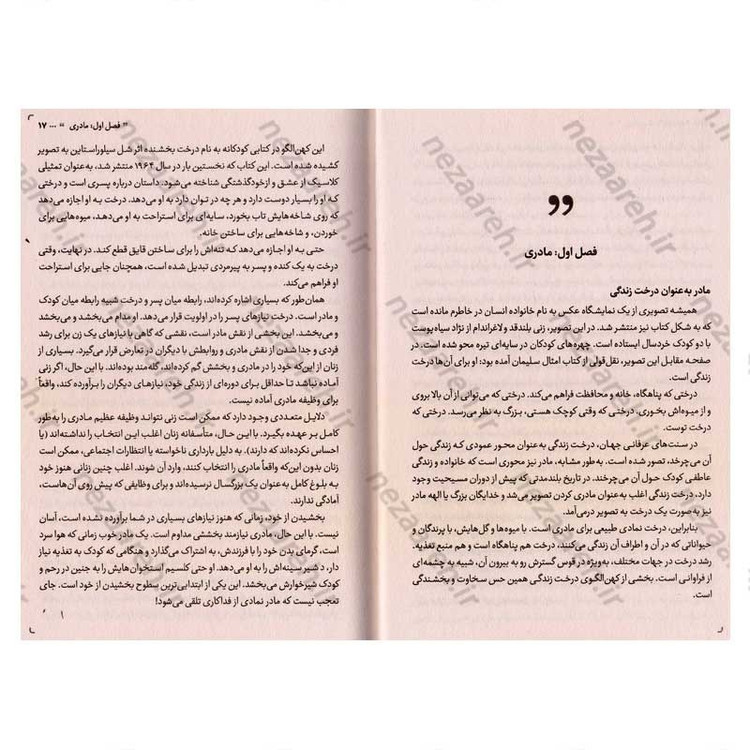 فصل اول: مادری
مادر به‌عنوان درخت زندگی
همیشه تصویری از یک نمایشگاه عکس به نام خانواده انسان در خاطرم مانده است
که به شکل کتاب نیز منتشر شد. در این تصویر، زنی بلندقد و لاغراندام از نژاد سیاه‌پوست
با دو کودک خردسال ایستاده است. چهره‌های کودکان در سایه‌ای تیره محو شده است. در
صفحه مقابل این تصویر، نقل‌قولی از کتاب امثال سلیمان آمده بود: او برای آن‌ها درخت
زندگی است.
درختی که پناهگاه، خانه و محافظت فراهم می‌کند. درختی که می‌توانی از آن بالا بروی
و از میوه‌اش بخوری. درختی که وقتی کوچک هستی، بزرگ به نظر می‌رسد. درختی که
درخت توست.
در سنت‌های عرفانی جهان، درخت زندگی به‌عنوان محور عمودی که زندگی حول
آن می‌چرخد، تصور شده است. به‌طور مشابه، مادر نیز محوری است که خانواده و زندگی
عاطفی کودک حول آن می‌چرخند. در تاریخ بلندمدتی که پیش از دوران مسیحیت وجود
دارد، درخت زندگی اغلب به‌عنوان مادری تصویر می‌شد و خدایگان بزرگ یا الهه مادر
نیز به صورت یک درخت به تصویر درمی‌آمد.
بنابراین، درخت نمادی طبیعی برای مادری است. با میوه‌ها و گل‌هایش، با پرندگان و
حیواناتی که در آن و اطراف آن زندگی می‌کنند، درخت هم پناهگاه است و هم منبع تغذیه.
رشد درخت در جهات مختلف، به‌ویژه در قوس گسترش رو به بیرون آن، شبیه به چشمه‌ای
از فراوانی است. بخشی از کهن‌الگوی درخت زندگی همین حس سخاوت و بخشندگی
است.
" فصل اول: مادری " ... ۱۷
این کهن‌الگو در کتابی کودکانه به نام درخت بخشنده اثر شل سیلوراستاین به تصویر
کشیده شده است. این کتاب که نخستین بار در سال ۱۹۶۴ منتشر شد، به‌عنوان تمثیلی
کلاسیک از عشق و ازخودگذشتگی شناخته می‌شود. داستان درباره پسری است و درختی
که او را بسیار دوست دارد و هر چه در توان دارد به او می‌دهد. درخت به او اجازه می‌دهد
که روی شاخه‌هایش تاب بخورد، سایه‌ای برای استراحت به او می‌دهد، میوه‌هایی برای
خوردن، و شاخه‌هایی برای ساختن خانه.
حتی به او اجازه می‌دهد که تنه‌اش را برای ساختن قایق قطع کند. در نهایت، وقتی
درخت به یک کنده و پسر به پیرمردی تبدیل شده است، همچنان جایی برای استراحت
او فراهم می‌کند.
همان‌طور که بسیاری اشاره کرده‌اند، رابطه میان پسر و درخت شبیه رابطه میان کودک
و مادر است. درخت نیازهای پسر را در اولویت قرار می‌دهد. او مدام می‌بخشد و می‌بخشد
و می‌بخشد. این بخشی از نقش مادر است، نقشی که گاهی با نیازهای یک زن برای رشد
فردی و جدا شدن از نقش مادری و روابطش با دیگران در تعارض قرار می‌گیرد. بسیاری از
زنان از این‌که خود را در مادری و بخشش گم کرده‌اند، گله‌مند بوده‌اند. با این حال، اگر زنی
آماده نباشد تا حداقل برای دوره‌ای از زندگی خود، نیازهای دیگران را برآورده کند، واقعاً
برای وظیفه مادری آماده نیست.
دلایل متعددی وجود دارد که ممکن است زنی نتواند وظیفه عظیم مادری را به‌طور
کامل بر عهده بگیرد. با این حال، متأسفانه زنان اغلب این انتخاب را نداشته‌اند (یا
احساس نکرده‌اند که دارند). به دلیل بارداری ناخواسته یا انتظارات اجتماعی، ممکن است
زنان بدون این‌که واقعاً مادری را انتخاب کنند، وارد آن شوند. اغلب چنین زنانی هنوز خود
به بلوغ کامل به‌عنوان یک بزرگسال نرسیده‌اند و برای وظایفی که پیش روی آن‌هاست،
آمادگی ندارند.
بخشیدن از خود، زمانی که هنوز نیازهای بسیاری در شما برآورده نشده است، آسان
نیست. با این حال، مادری نیازمند بخششی مداوم است. یک مادر خوب زمانی که هوا سرد
است، گرمای بدن خود را با فرزندش، به اشتراک می‌گذارد و هنگامی که کودک به تغذیه نیاز
دارد، شیر سینه‌اش را به او می‌دهد. او حتی کلسیم استخوان‌هایش را به جنین در رحم و
کودک شیرخوارش می‌بخشد. این یکی از ابتدایی‌ترین سطوح بخشیدن از خود است. جای
تعجب نیست که مادر نمادی از فداکاری تلقی می‌شود!
nezaareh.ir